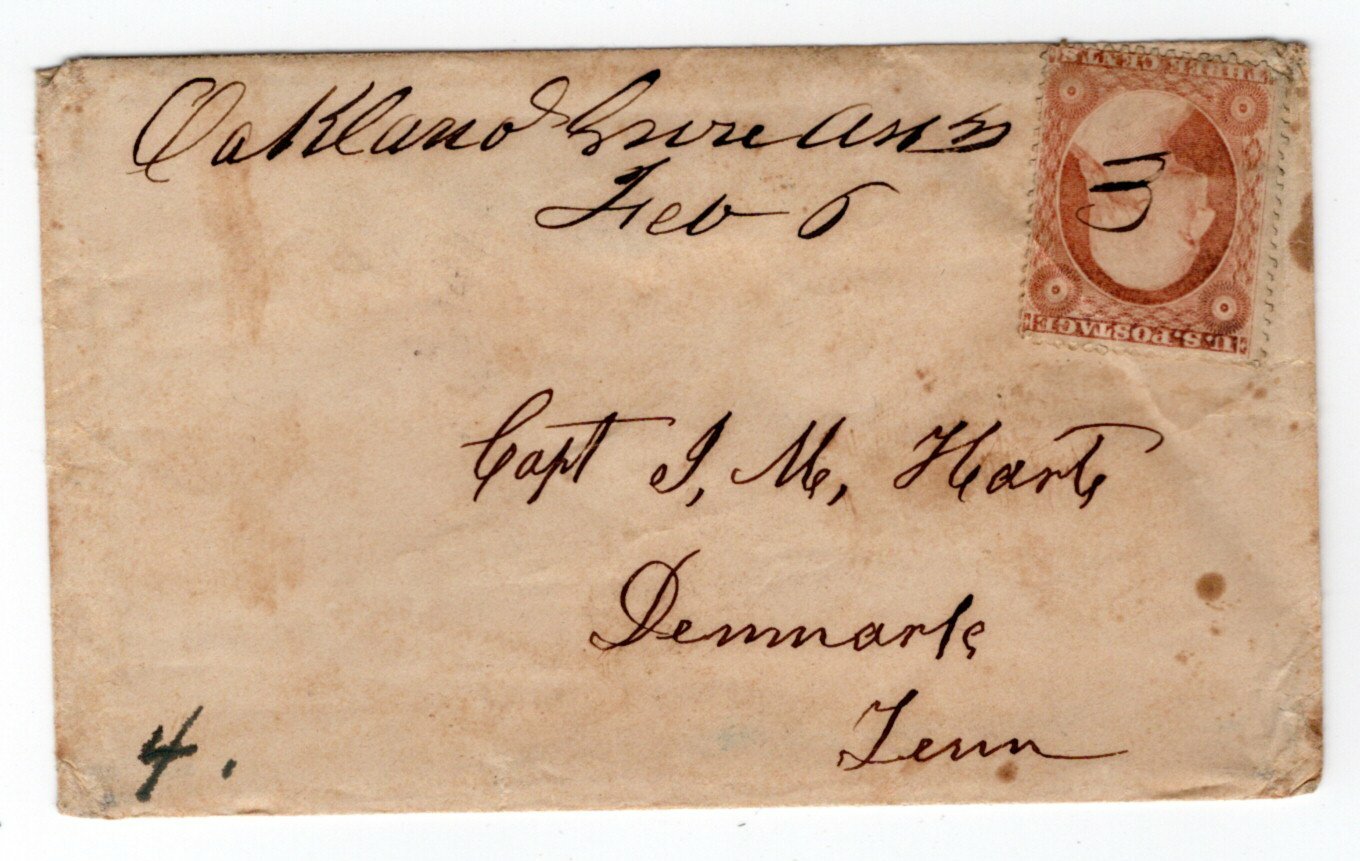 Oakland Grove Arks
Feb 6
3
THREE CENTS
U.S. POSTAGE
Capt J, M, Hart
Denmark
Tenn
4.